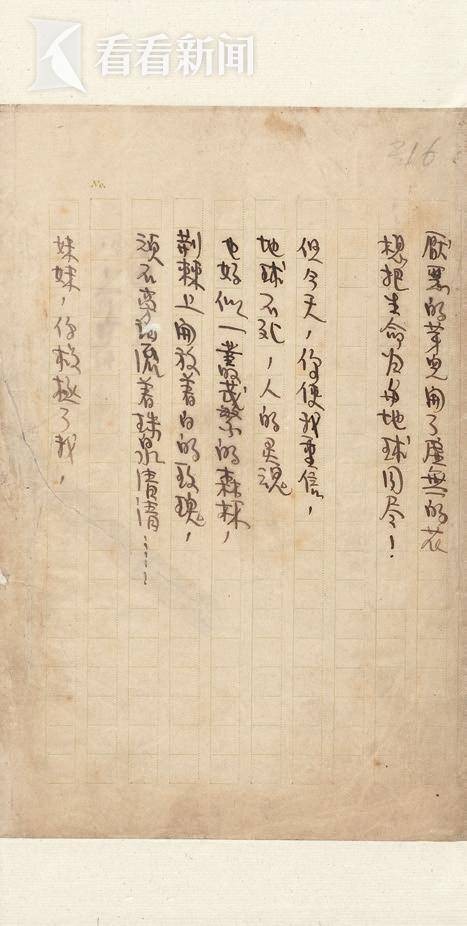 看看新闻
316
No.
厭惡的芽兒開了虛無的花
想把生命力与地球同尽！
但今天，你使我重信，
地球不死，人的灵魂
也好似一叢茂繁的森林，
荆棘上開放着白的玫瑰，
頑石旁流着珠泉清清……
妹妹，你了我，